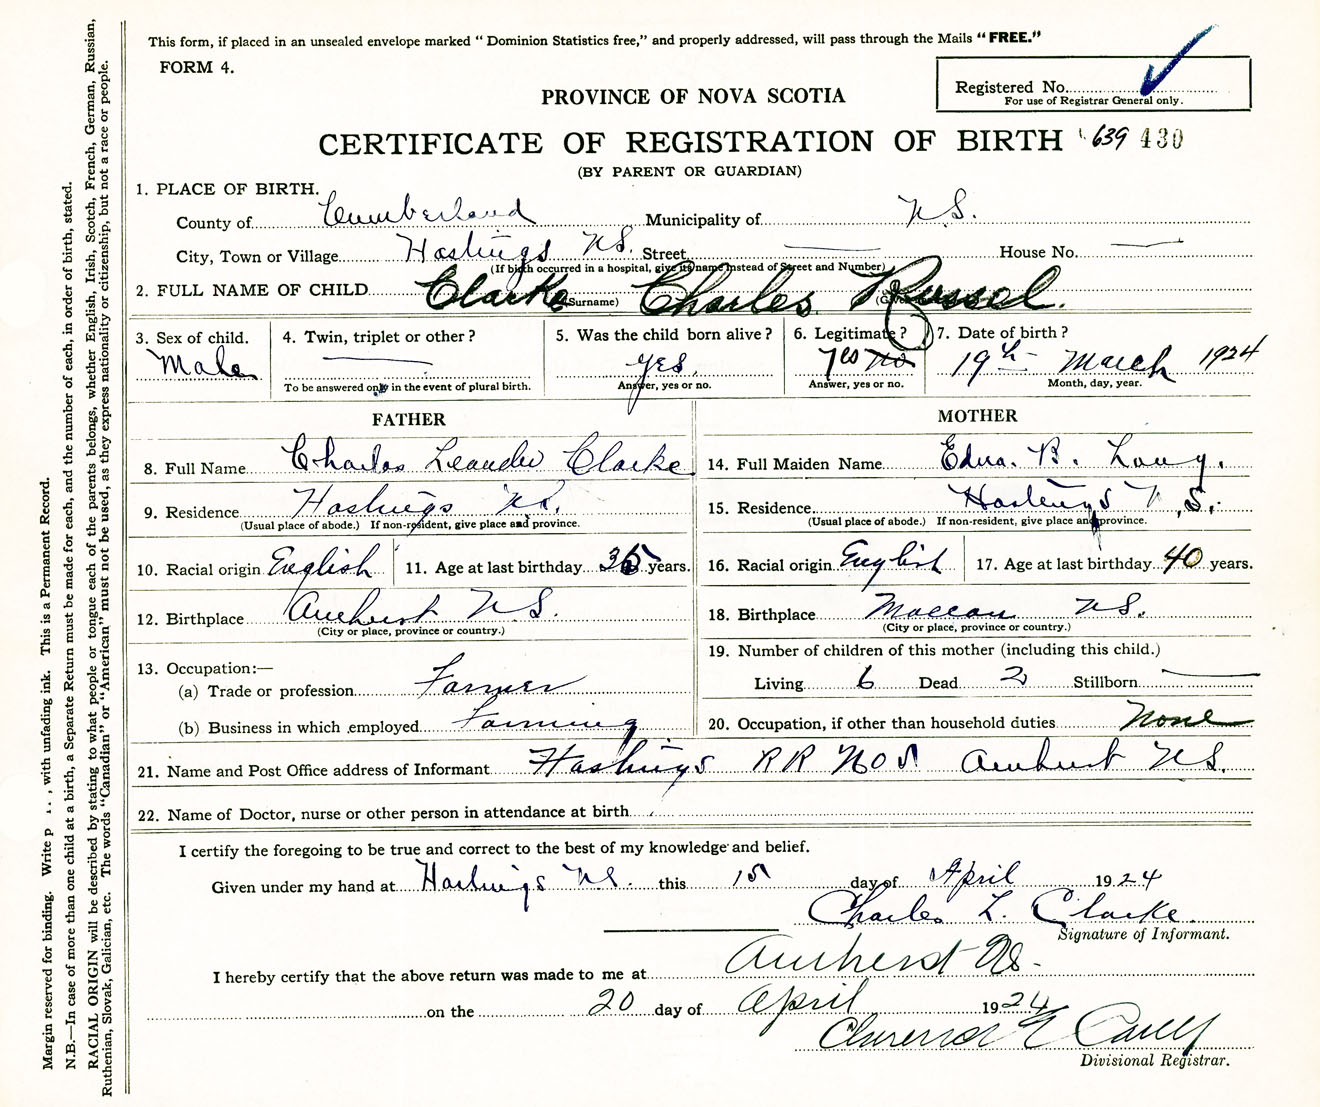 This form, if placed in an unsealed envelope marked “ Dominion Statistics free,” and properly addressed, will pass through the Mails “FREE.”
FORM 4.
Registered No.
For use of Registrar General only.
PROVINCE OF NOVA SCOTIA
CERTIFICATE OF REGISTRATION OF BIRTH 639 430
(BY PARENT OR GUARDIAN)
1. PLACE OF BIRTH.
County of Cumberland Municipality of N.S.
City, Town or Village Hastings N.S. Street House No.
(If birth occurred in a hospital, give its name instead of Street and Number)
2. FULL NAME OF CHILD Clarke Charles Russel.
(Surname)
3. Sex of child. 4. Twin, triplet or other? 5. Was the child born alive? 6. Legitimate? 7. Date of birth?
Male yes. Yes No 19th March 1924
To be answered only in the event of plural birth. Answer, yes or no. Answer, yes or no. Month, day, year.
FATHER
8. Full Name Charles Leander Clarke
9. Residence Hastings N.S.
(Usual place of abode.) If non-resident, give place and province.
10. Racial origin English 11. Age at last birthday years.
12. Birthplace Amherst N.S.
(City or place, province or country.)
13. Occupation:—
(a) Trade or profession Farmer
(b) Business in which employed Farming
MOTHER
14. Full Maiden Name Edna. B.
15. Residence Hastings N.S.
(Usual place of abode.) If non-resident, give place and province.
16. Racial origin English 17. Age at last birthday 40 years.
18. Birthplace Maccan N.S.
(City or place, province or country.)
19. Number of children of this mother (including this child.)
Living 6 Dead 2 Stillborn
20. Occupation, if other than household duties None
21. Name and Post Office address of Informant Hastings RR No 5 Amherst N.S.
22. Name of Doctor, nurse or other person in attendance at birth
I certify the foregoing to be true and correct to the best of my knowledge and belief.
Given under my hand at Hastings N.S. this 15 day of April 1924
Charles L. Clarke.
Signature of Informant.
I hereby certify that the above return was made to me at Amherst N.S.
on the 20 day of April 1924
Clarence E
Divisional Registrar.
Margin reserved for binding. Write p , with unfading ink. This is a Permanent Record.
N.B.—In case of more than one child at a birth, a Separate Return must be made for each, and the number of each, in order of birth, stated.
RACIAL ORIGIN will be described by stating to what people or tongue each of the parents belongs, whether English, Irish, Scotch, French, German, Russian,
Ruthenian, Slovak, Galician, etc. The words “Canadian” or “American” must not be used, as they express nationality or citizenship, but not a race or people.